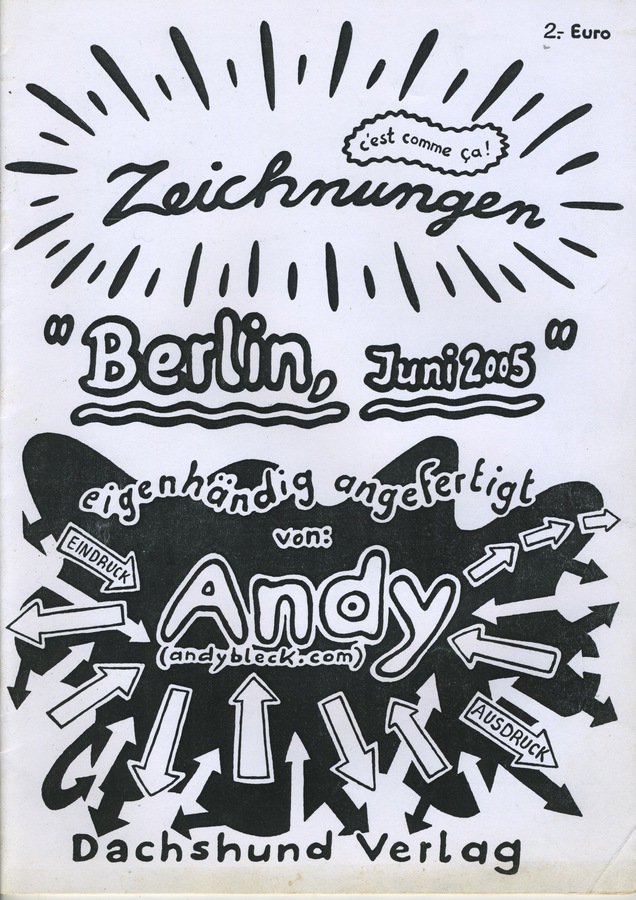 2.- Euro
c'est comme ça!
Zeichnungen
"Berlin, Juni 2005"
eigenhändig angefertigt
von:
EINDRUCK
Andy
(andybleck.com)
AUSDRUCK
Dachshund Verlag